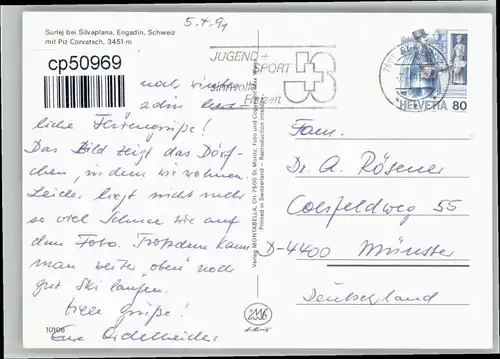 Surlej bei Silvaplana, Engadin, Schweiz
mit Piz Corvatsch, 3451 m
5.4.91
cp50969
JUGEND +
SPORT
sinnvolle
Freizeit
JS
7500
HELVETIA 80
noch
liche Feriengrüße!
Das Bild zeigt das Dörf-
chen, in dem wir wohnen.
Leider liegt nicht mehr
so viel Schnee wie auf
dem Foto. Trotzdem kann
man weiter "oben" noch
gut Ski laufen.
Viele Grüße!
Eure
10106
Verlag MONTABELLA, CH-7500 St. Moritz, Foto und Copyright
Printed in Switzerland - Reproduction interdite
Fam.
Dr. A. Rösener
Coesfeldweg 55
D-4400 Münster
Deutschland